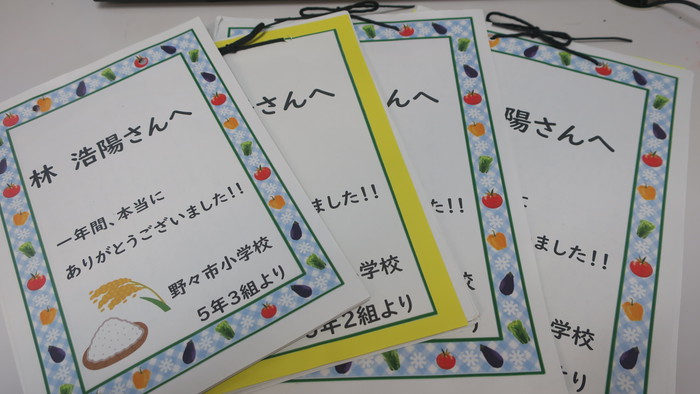 林 浩陽さんへ
一年間、本当に
ありがとうございました!!
野々市小学校
5年3組より
さんへ
ました!!
学校
5年2組より
んへ
た!!
陽さんへ
に
ました!!
学校
組より